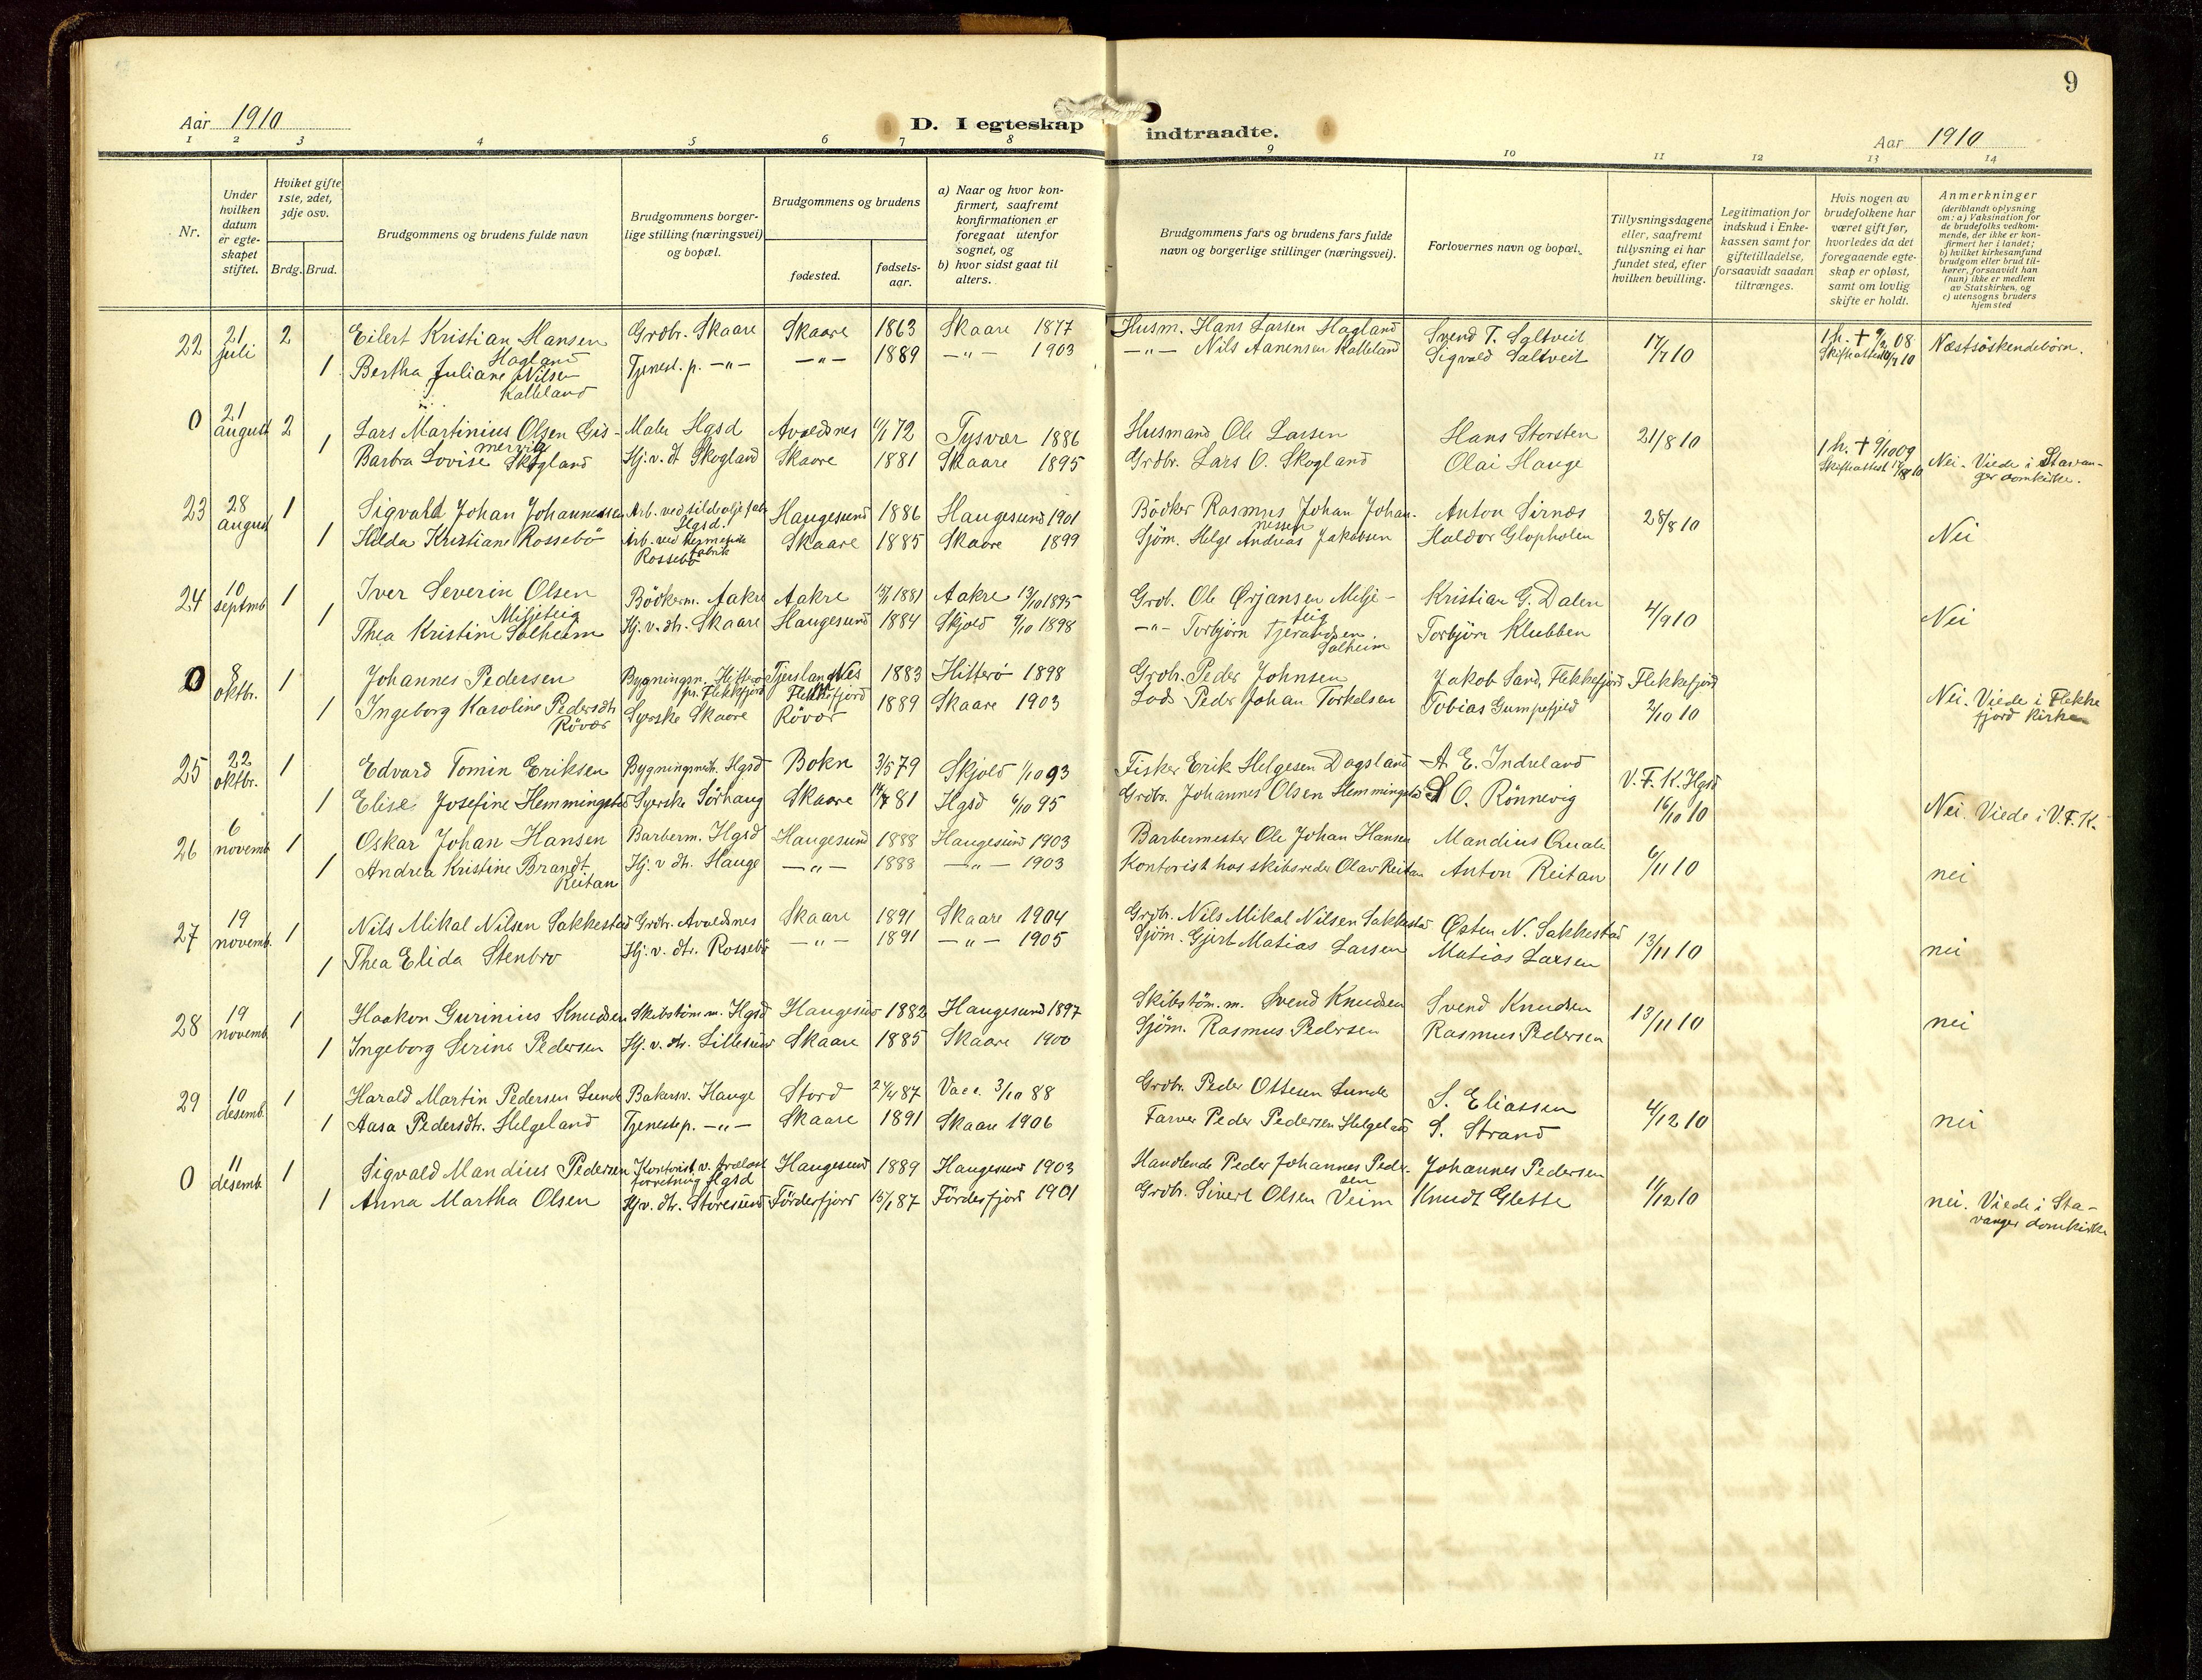 9
Aar 1910
D. I egteskap indtraadte.
Aar 1910
1 2 3 4 5 6 7 8 9 10 11 12 13 14
Nr.
Under hvilken datum er egteskapet stiftet.
Hviket gifte, 1ste, 2det, 3dje osv.
Brdg. Brud.
Brudgommens og brudens fulde navn
Brudgommens borgerlige stilling (næringsvei) og bopæl.
Brudgommens og brudens
fødested.
fødselsaar.
a) Naar og hvor konfirmert, saafremt konfirmationen er foregaat utenfor sognet, og
b) hvor sidst gaat til alters.
Brudgommens fars og brudens fars fulde navn og borgerlige stillinger (næringsvei).
Forlovernes navn og bopæl.
Tillysningsdagene eller, saafremt tillysning ei har fundet sted, efter hvilken bevilling.
Legitimation for indskud i Enkekassen samt for giftetilladelse, forsaavidt saadan tiltrænges.
Hvis nogen av brudefolkene har været gift før, hvorledes da det foregaaende egteskap er opløst, samt om lovlig skifte er holdt.
Anmerkninger (deriblandt oplysning om: a) Vaksination for de brudefolks vedkommende, der ikke er konfirmert her i landet; b) hvilket kirkesamfund brudgom eller brud tilhører, forsaavidt han (hun) ikke er medlem av Statskirken, og c) utensogns bruders hjemsted
22 21 juli 2 Eilert Kristian Hansen Hagland Grdbr. Skaare Skaare 1863 Skaare 1877 Husm. Hans Larsen Hagland Svend T. Saltveit 17/7 10 1 h. + 9/2 08 Skifteattest 10/7 10 Næstsöskendebörn.
1 Bertha Juliane Nilsen Kalleland Tjenest. p. -"- -"- 1889 -"- 1903 -"- Nils Aanensen Kalleland Sigvald Saltveit
0 21 august 2 Lars Martinius Olsen Gismervig Maler Hgsd Avaldsnes 72 Tysvær 1886 Husmand Ole Larsen Hans Storsten 21/8 10 1 h. + 9/10 09 Skifteattest 10 Nei. Viede i Stavanger domkirke.
1 Barbra Lovise Skogland Hj. v. dt Skogland Skaare 1881 Skaare 1895 Grdbr. Lars O. Skogland Olai Hauge
23 28 august 1 Sigvald Johan Johannessen Arb. ved sildolje fab. Hgsd. Haugesund 1886 Haugesund 1901 Bödker Rasmus Johan Johannessen Anton Sirnæs 28/8 10 Nei
1 Hilda Kristiane Rossebö Arb. ved hermetik fabrik Rossebö Skaare 1885 Skaare 1899 Sjöm. Helge Andreas Jakobsen Haldor Glopholen
24 10 septmb 1 Iver Severin Olsen Miljeteig Bödkerm. Aakre Aakre 1881 Aakre 13/10 1895 Grdb. Ole Ørjansen Meljeteig Kristian G. Dalen 4/9 10 Nei
1 Thea Kristine Solheim Hj. v. dtr. Skaare Haugesund 1884 Skjold 9/10 1898 -"- Torbjörn Tjerandsen Solheim Torbjörn Klubben
0 8 oktbr. 1 Johannes Pedersen Bygningsm. Hitterö pr. Flekkefjord Tjersland Nes Flekkefjord 1883 Hitterö 1898 Grdbr. Peder Johnsen Jakob Sand, Flekkefjord Flekkefjord 2/10 10 Nei. Viede i Flekkefjord kirke
1 Ingeborg Karoline Pedersdtr Rövær Syerske Skaare Rövær 1889 Skaare 1903 Lods Peder Johan Torkelsen Tobias Gumpefjeld
25 22 oktbr. 1 Edvard Tomin Eriksen Bygningssnedk. Hgsd Bokn 3/5 79 Skjold 1/10 93 Fisker Erik Helgesen Dagsland A. E. Indreland V. F. K. Hgsd 16/10 10 Nei. Viede i V. F. K.
1 Elise Josefine Hemmingstad Syerske Sörhaug Skaare 81 Hgsd 6/10 95 Grdbr. Johannes Olsen Hemmingstad O. Rönnevig
26 6 novemb 1 Oskar Johan Hansen Barberm. Hgsd Haugesund 1888 Haugesund 1903 Barbermester Ole Johan Hansen Mandius Quale 6/11 10 nei
1 Andrea Kristine Brandt Reitan Hj. v dtr. Hauge -"- 1888 -"- 1903 Kontorist hos skibsreder Olav Reitan Anton Reitan
27 19 novemb. 1 Nils Mikal Nilsen Sakkestad Grdbr. Avaldsnes Skaare 1891 Skaare 1904 Grdbr. Nils Mikal Nilsen Sakkestad Østen N. Sakkestad 13/11 10 nei
1 Thea Elida Stenbro Hj. v. dtr. Rossebö -"- 1891 -"- 1905 Sjöm. Gjert Matias Larsen Matias Larsen
28 19 novemb 1 Haakon Gurinius Knudsen Skibstöm. m. Hgsd Haugesund 1882 Haugesund 1897 Skibstöm. m. Svend Knudsen Svend Knudsen 13/11 10 nei
1 Ingeborg Serine Pedersen Hj. v. dtr. Lillesund Skaare 1885 Skaare 1900 Sjöm. Rasmus Pedersen Rasmus Pedersen
29 10 desemb. 1 Harald Martin Pedersen Lunde Bakersv. Hauge Stord 24/4 87 Vacc. 3/10 88 Grdbr. Peder Ottesen Lunde S. Eliassen 4/12 10 nei
1 Aasa Pedersdtr. Helgeland Tjenestep. -"- Skaare 1891 Skaare 1906 Farver Peder Pedersen Helgeland S. Strand
0 11 desemb. 1 Sigvald Mandius Pedersen Kontorist v. trælast forretning Hgsd Haugesund 1889 Haugesund 1903 Handlende Peder Johannes Pedersen Johannes Pedersen 11/12 10 nei. Viede i Stavanger domkirke
1 Anna Martha Olsen Hj v. dtr. Storesund Förderfjord 15/1 87 Förderfjord 1901 Grdbr. Sivert Olsen Veim Knudt Glette